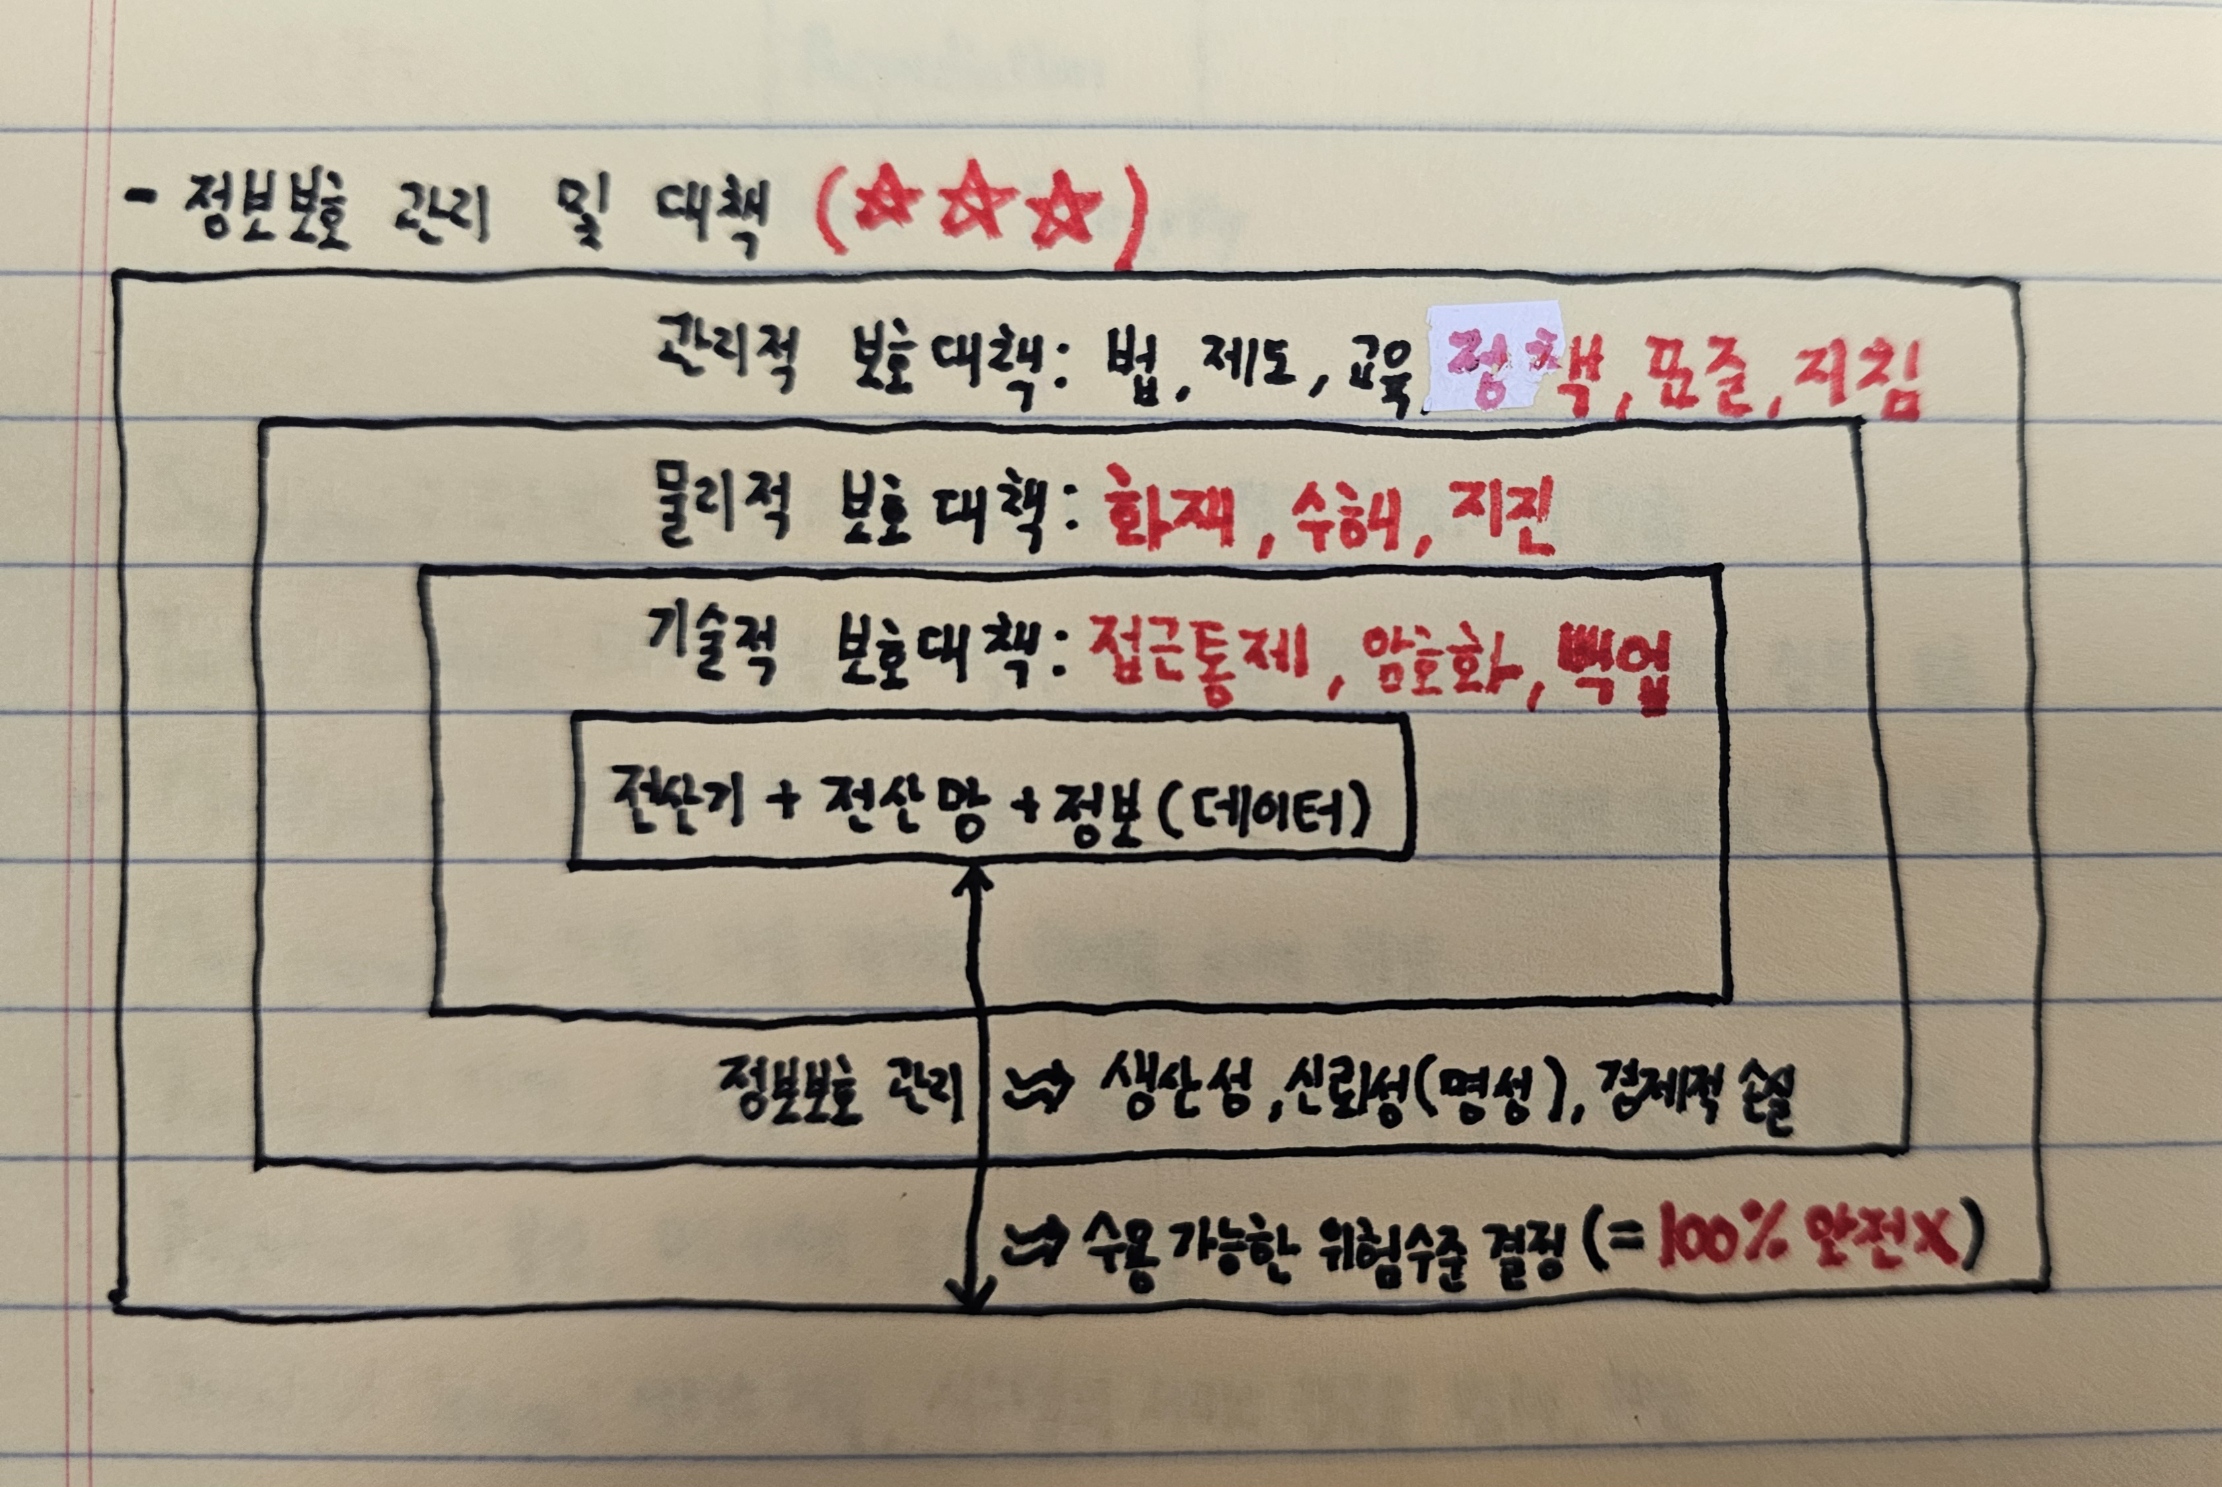 - 정보보호 관리 및 대책 (☆☆☆)
관리적 보호대책: 법, 제도, 교육, 정책, 표준, 지침
물리적 보호대책: 화재, 수해, 지진
기술적 보호대책: 접근통제, 암호화, 빽업
전산기 + 전산망 + 정보(데이터)
정보보호 관리 ⇒ 생산성, 신뢰성(명성), 경제적 손실
⇒ 수용 가능한 위험수준 결정 (= 100% 안전X)